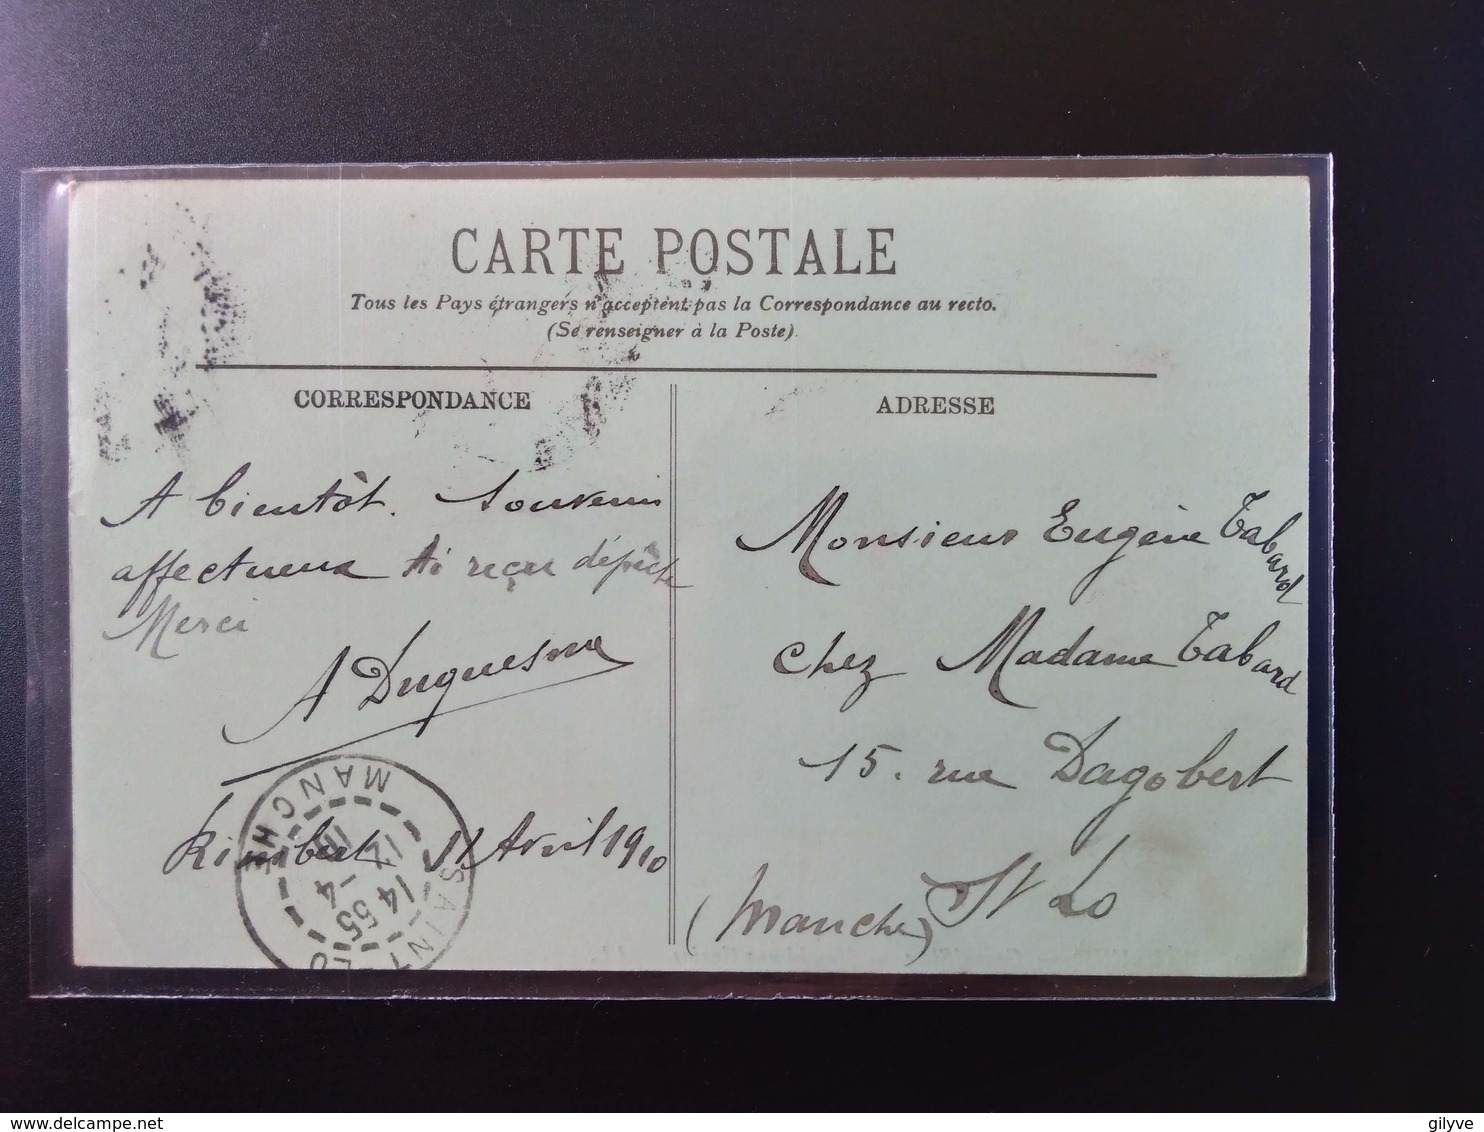 CARTE POSTALE
Tous les Pays étrangers n'acceptent pas la Correspondance au recto.
(Se renseigner à la Poste)
CORRESPONDANCE
A bientôt. Souvenir
affectueux Ai reçu dépêche
Merci
A Duquesne
11 Avril 1910
ADRESSE
Monsieur Eugène Tabard
chez Madame Tabard
15. rue Dagobert
St Lo
(Manche)
SAINT-LO
MANCHE
14 55
12 -4
10
delcampe.net
gilyve